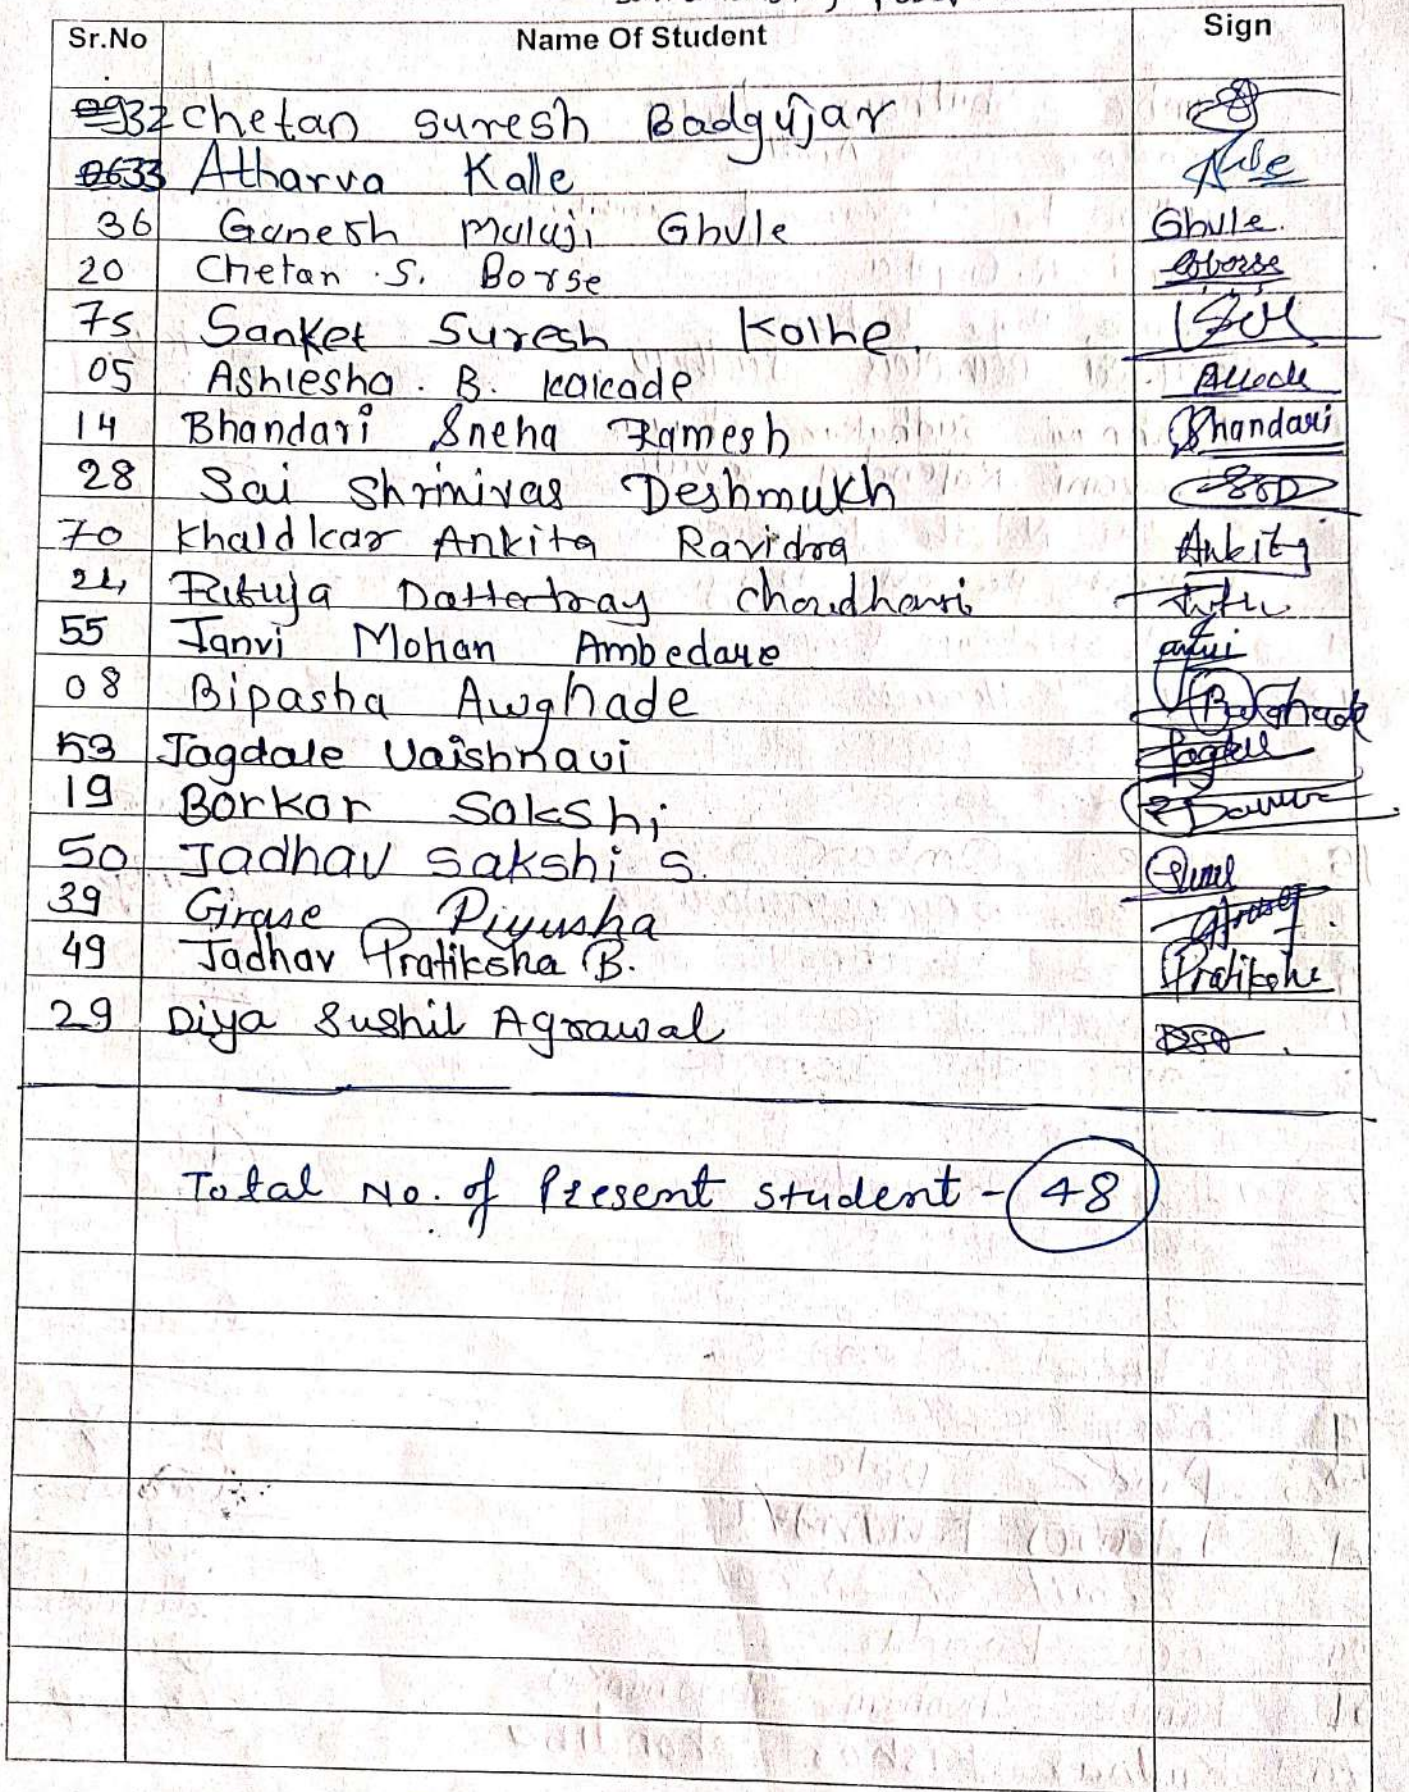 Sr.No Name Of Student Sign
32 Chetan Suresh Badgujar
33 Atharva Kalle
36 Ganesh Maluji Ghule Ghule.
20 Chetan .S. Borse Borse
75 Sanket Suresh Kolhe.
05 Ashlesha . B. kalcade
14 Bhandari Sneha Ramesh Bhandari
28 Sai Shrinivas Deshmukh SSD
70 Khaldkar Ankita Ravidra Ankita
Rutuja Dattatray Choudhari
55 Janvi Mohan Ambedare
08 Bipasha Awghade
53 Jagdale Vaishnavi
19 Borkar Sakshi
50 Jadhav Sakshi S.
39 Girase Piyusha
49 Jadhav Pratiksha B. Pratiksha
29 Diya Sushil Agrawal DSA
Total No. of Present student - 48